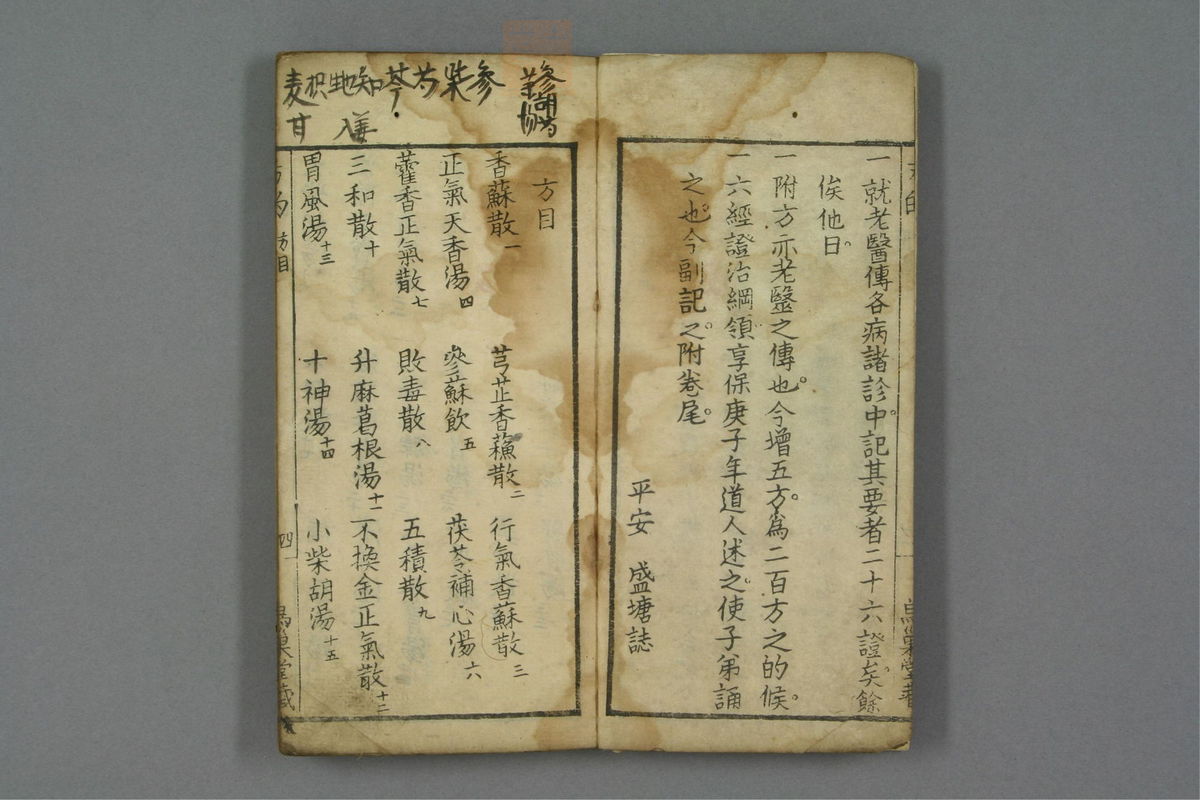 一就老醫傳各病諸診中。記其要者二十六證矣。餘
俟他日。
一附方亦老醫之傳也。今増五方。爲二百方之的候。
一六經證治綱領享保庚子年道人述之。使子弟誦
之也。今副記之。附卷尾。
平安　盛塘誌
參胡芍
参柴芍芩知地枳麦
姜入甘
方目
香蘇散一　芎芷香蘓散二　行氣香蘇散三
正氣天香湯四　參蘇飲五　茯苓補心湯六
藿香正氣散七　敗毒散八　五積散九
三和散十　升麻葛根湯十一　不換金正氣散十二
胃風湯十三　十神湯十四　小柴胡湯十五
方的　方目　四